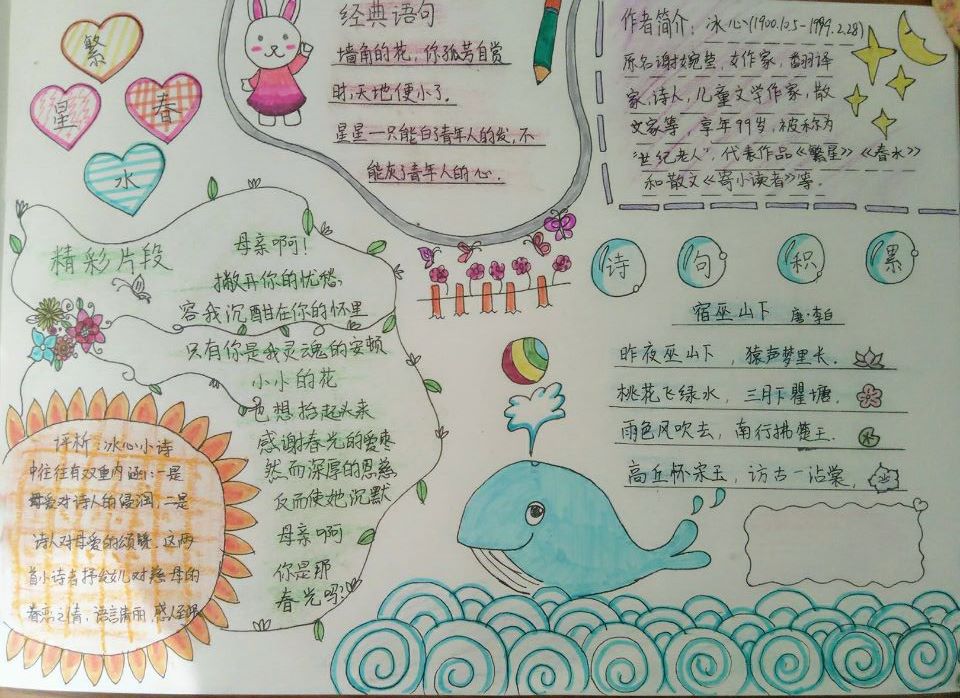 繁
星
春
水
经典语句
墙角的花，你孤芳自赏
时，天地便小了。
星星—只能白了青年人的发，不
能灰了青年人的心。
作者简介：冰心(1900.10.5-1999.2.28)
原名谢婉莹，女作家，翻译
家，诗人，儿童文学作家，散
文家等，享年99岁，被称为
“世纪老人”，代表作品《繁星》《春水》
和散文《寄小读者》等。
精彩片段
母亲啊！
撇开你的忧愁，
容我沉酣在你的怀里
只有你是我灵魂的安顿
小小的花
也想抬起头来
感谢春光的爱
然而深厚的恩慈
反而使她沉默
母亲啊
你是那
春光吗？
评析：冰心小诗
中往往有双重内涵：一是
母爱对诗人的浸润，二是
诗人对母爱的颂赞。这两
首小诗者抒发幼儿对慈母的
眷恋之情，语言清丽，感人至深
诗句积累
宿巫山下 唐·李白
昨夜巫山下，猿声梦里长。
桃花飞绿水，三月下瞿塘。
雨色风吹去，南行拂楚王。
高丘怀宋玉，访古一沾裳。